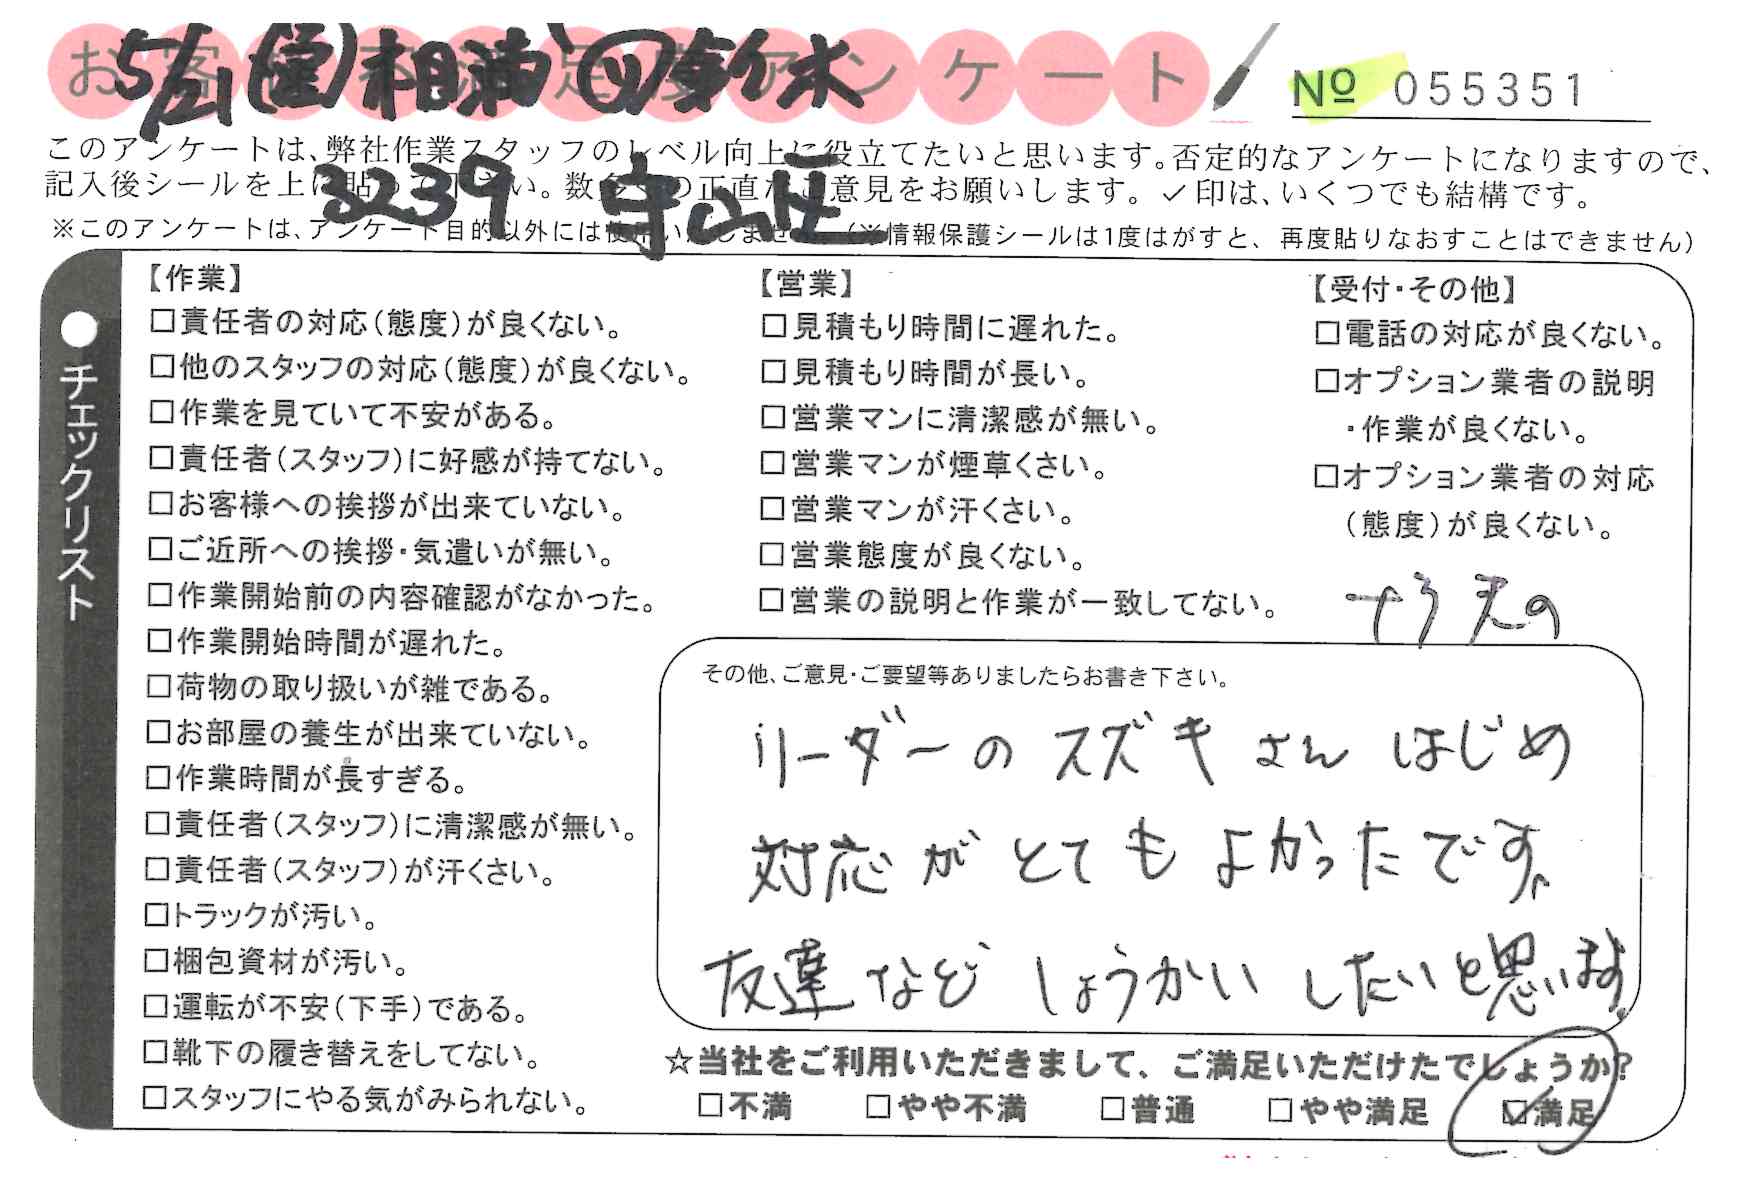 お客様不満足度アンケート
№ 055351
5/21(金)相浦
3239 守山区
このアンケートは、弊社作業スタッフのレベル向上に役立てたいと思います。否定的なアンケートになりますので、
記入後シールを上に貼って下さい。数多くの正直なご意見をお願いします。✓印は、いくつでも結構です。
※このアンケートは、アンケート目的以外には使用いたしません。(※情報保護シールは1度はがすと、再度貼りなおすことはできません)
●チェックリスト
【作業】
□責任者の対応(態度)が良くない。
□他のスタッフの対応(態度)が良くない。
□作業を見ていて不安がある。
□責任者(スタッフ)に好感が持てない。
□お客様への挨拶が出来ていない。
□ご近所への挨拶・気遣いが無い。
□作業開始前の内容確認がなかった。
□作業開始時間が遅れた。
□荷物の取り扱いが雑である。
□お部屋の養生が出来ていない。
□作業時間が長すぎる。
□責任者(スタッフ)に清潔感が無い。
□責任者(スタッフ)が汗くさい。
□トラックが汚い。
□梱包資材が汚い。
□運転が不安(下手)である。
□靴下の履き替えをしてない。
□スタッフにやる気がみられない。
【営業】
□見積もり時間に遅れた。
□見積もり時間が長い。
□営業マンに清潔感が無い。
□営業マンが煙草くさい。
□営業マンが汗くさい。
□営業態度が良くない。
□営業の説明と作業が一致してない。
【受付・その他】
□電話の対応が良くない。
□オプション業者の説明
・作業が良くない。
□オプション業者の対応
(態度)が良くない。
その他、ご意見・ご要望等ありましたらお書き下さい。
リーダーのスズキさんはじめ
対応がとてもよかったです。
友達などしょうかいしたいと思います。
☆当社をご利用いただきまして、ご満足いただけたでしょうか?
□不満 □やや不満 □普通 □やや満足 ☑満足